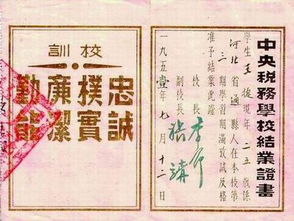 中央稅務學校結業證書
學生
後現年二五歲係
河北省
縣人在本校第
三期學習期滿成績及格
准予結業此證
校長
副校長
一九五壹年七月十二日
校訓
忠誠
樸實
廉潔
勤能